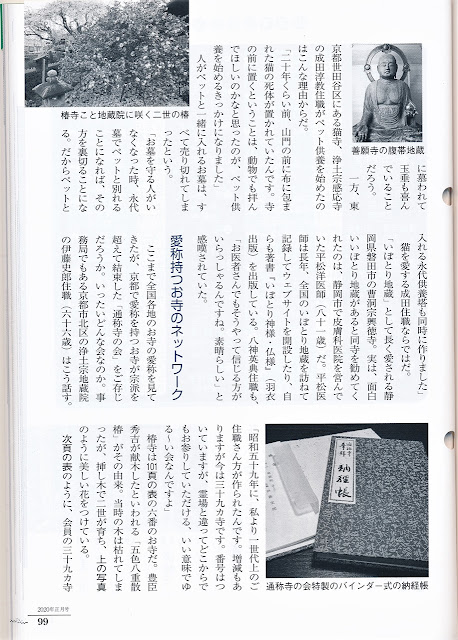 善願寺の腹帯地蔵
椿寺こと地蔵院に咲く二世の椿
に慕われて
玉垂も喜ん
でいること
だろう。
一方、東
京都世田谷区にある猫寺、浄土宗感応寺
の成田淳教住職がペット供養を始めたの
はこんな理由からだ。
「二十年くらい前、山門の前に布に包ま
れた猫の死体が置かれていたんです。寺
の前に置くということは、動物でも拝ん
でほしいのかなと思ったのが、ペット供
養を始めるきっかけになりました」
人がペットと一緒に入れるお墓は、す
べて売り切れてしま
ったという。
「お墓を守る人がい
なくなった時、永代
墓でペットと別れる
ことになれば、その
方を裏切ることにな
る。だからペットと
入れる永代供養墓も同時に作りました」
猫を愛する成田住職ならではだ。
「いぼとり地蔵」として長く愛される静
岡県磐田市の曹洞宗興徳寺。実は、面白
いいぼとり地蔵があると同寺を勧めてく
れたのは、静岡市で皮膚科医院を営んで
いた平松洋医師（八十一歳）だ。平松医
師は長年、全国のいぼとり地蔵を訪ねて
記録してウェブサイトを開設したり、自
らも著書『いぼとり神様・仏様』（羽衣
出版）を出版している。八神英典住職も、
「お医者さんでもそうやって信じる方が
いらっしゃるんですね。素晴らしい」と
感嘆されていた。
愛称持つお寺のネットワーク
ここまで全国各地のお寺の愛称を見て
きたが、京都で愛称を持つお寺が宗派を
超えて結束した「通称寺の会」をご存じ
だろうか。いったいどんな会なのか。事
務局でもある京都市北区の浄土宗地蔵院
の伊藤史郎住職（六十六歳）はこう話す。
納経帳
通称寺の会特製のバインダー式の納経帳
「昭和五十九年に、私より一世代上のご
住職さん方が作られたんです。増減もあ
りますが今は三十九カ寺です。番号はつ
いていますが、霊場と違ってどこからで
もお参りしていただける、いい意味でゆ
る〜い会なんですよ」
椿寺は101頁の表の六番のお寺だ。豊臣
秀吉が献木したといわれる「五色八重散
椿」がその由来。当時の木は枯れてしま
ったが、挿し木で二世が育ち、上の写真
のように美しい花をつけている。
次頁の表のように、会員の三十九カ寺
2020年正月号
99